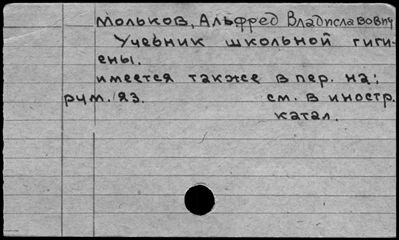 Мольков, Альфред Владиславович
Учебник школьной гиги-
ены.
имеется также в пер. на:
рум. яз. см. в иностр.
катал.